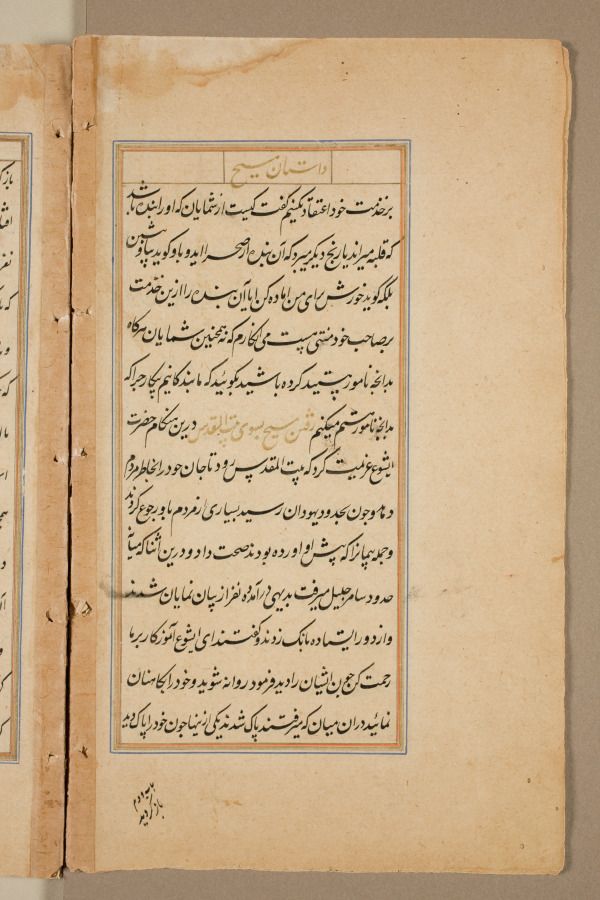 داستان مسیح
بر خدمت خود اعتقاد نکنیم گفت کیست از شمایان که او را بنده باشد
که قلبه میراند یا رنج دیگر میبرد که آن بنده از صحرا اید و باو کوید بیا و بنشین
بلکه کوید خورش برای من اماده کن ایا آن بنده را ازین خدمت
بر صاحب خود منتی هست می انکارم که نه همچنین شمایان هرکاه
بدانچه نامور هستید کرده باشید بکوئید که ما بندکانیم بیکار چرا که
بدانچه نامور هستم میکنیم رفتن مسیح بسوی بیت المقدس درین هنکام حضرت
ایشوع عزیمت کرد که بیت المقدس رود تا جان خود را بخاطر مردم
دهد و چون بحدود یهودان رسید بسیاری از مردم باو رجوع کردند
و جمله بیمارانرا که پیش او اورده بودند صحت داد و درین اثنا که میان
حدود سامر و جلیل میرفت بدیهی در آمد ده نفر از پیسان نمایان شدند
و از دور ایستاده بانک زدند و کفتند ای ایشوع آموزکار بر ما
رحمت کن چون ایشان را دید فرمود روانه شوید و خود را بکاهنان
نمائید در ان میان که میرفتند پاک شدند یکی از ینها چون خود را پاک دید
باز کردید